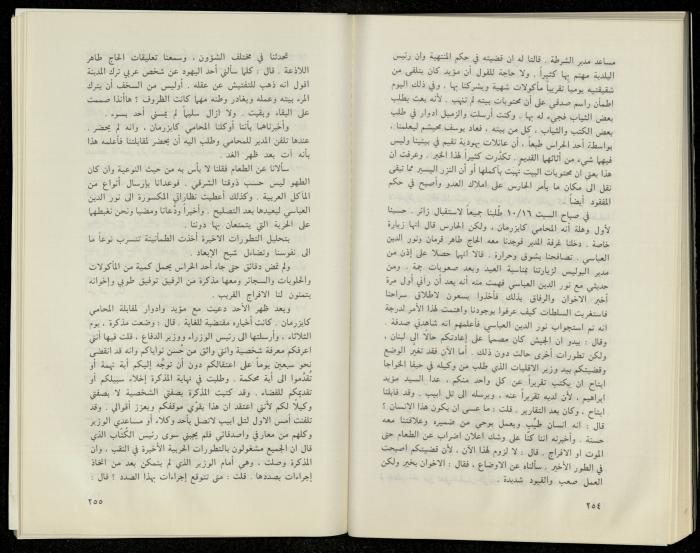 مساعد مدير الشرطة . قالتا له ان قضيته في حكم المنتهية وان رئيس
البلدية مهتم بها كثيراً . ولا حاجة للقول أن مؤيد كان يتلقى من
شقيقتيه يومياً تقريباً مأكولات شهية ويشركنا بها . وفي ذلك اليوم
اطمأن واسم صدقي على أن محتويات بيته لم تنهب . لأنه بعث يطلب
بعض الثياب فجيء له بها . وكنت أرسلت والزميل ادوار في طلب
بعض الكتب والثياب ، كل من بيته ، فعاد يوسف محيشم ليعلمنا ،
بواسطة أحد الحراس طبعاً ، أن عائلات يهودية تقيم في بيتينا وليس
فيهما شيء من أثاثهما القديم . تكدّرت كثيراً لهذا الخبر . وعرفت ان
هذا يعني ان محتويات البيت نهبت بأكملها أو أن النزر اليسير مما تبقى
نقل الى مكان ما بأمر الحارس على املاك العدو وأصبح في حكم
المفقود أيضاً .
في صباح السبت ١٠/١٦ طُلبنا جميعاً لاستقبال زائر . حسبنا
لأول وهلة أنه المحامي كايزرمان ، ولكن الحارس قال انها زيارة
خاصة . دخلنا غرفة المدير فوجدنا معه الحاج طاهر قرمان ونور الدين
العباسي . تصافحنا بشوق وحرارة . قالا انهما حصلا على إذن من
مدير البوليس لزيارتنا بمناسبة العيد وبعد صعوبات جمة . ومن
حديثي مع نور الدين العباسي فهمت منه أنه بعد أن رآني أول مرة
أخبر الاخوان والرفاق بذلك فأخذوا يسعون لاطلاق سراحنا
فاستغربت السلطات كيف عرفوا بوجودنا واهتمت لهذا الأمر لدرجة
انه تم استجواب نور الدين العباسي فأعلمهم انه شاهدني صدفة .
وقال : يبدو ان الجيش كان مصمماً على إعادتكم حالاً الى لبنان ،
ولكن تطورات أخرى حالت دون ذلك . أما الآن فقد تغير الوضع
وقضيتكم بيد وزير الاقليات الذي طلب من وكيله في حيفا الخواجا
ابتاح ان يكتب تقريراً عن كل واحد منكم ، عدا السيد مؤيد
ابراهيم ، لأن لديه تقريراً عنه ، ويرسله الى تل ابيب . وقد قابلنا
ابتاح ، وكان يعد التقارير . قلت : ما عسى ان يكون هذا الانسان ؟
قال : انه انسان طيّب ويعمل بوحي من ضميره وعلاقتنا معه
حسنة . وأخبرته اننا كنا على وشك اعلان اضراب عن الطعام حتى
الموت او الافراج . قال : لا لزوم لهذا الآن ، لأن قضيتكم اصبحت
في الطور الأخير . سألناه عن الاوضاع ، فقال : الاخوان بخير ولكن
العمل صعب والقيود شديدة .
٢٥٤
تحدثنا في مختلف الشؤون ، وسمعنا تعليقات الحاج طاهر
اللاذعة . قال : كلما سألني أحد اليهود عن شخص عربي ترك المدينة
اقول انه ذهب للتفتيش عن عقله . أوليس من السخف أن يترك
المرء بيته وعمله ويغادر وطنه مهما كانت الظروف ؟ هاأنذا صممت
على البقاء وبقيت . ولا ازال سليماً لم يمسني أحد بسوء .
وأخبرناهما بأننا أوكلنا المحامي كايزرمان ، وانه لم يحضر .
عندها تلفن المدير للمحامي وطلب اليه أن يحضر لمقابلتنا فأعلمه هذا
بأنه آت بعد ظهر الغد .
سألانا عن الطعام فقلنا لا بأس به من حيث النوعية وان كان
الطهو ليس حسب ذوقنا الشرقي . فوعدانا بإرسال أنواع من
المآكل العربية . وكذلك أعطيت نظاراتي المكسورة الى نور الدين
العباسي ليعيدها بعد التصليح . وأخيراً ودّعانا ومضيا ونحن نغبطهما
على الحرية التي يتمتعان بها دوننا .
بتحليل التطورات الاخيرة أخذت الطمأنينة تتسرب نوعاً ما
الى نفوسنا وتضاءل شبح الإبعاد .
ولم تمض دقائق حتى جاء أحد الحراس يحمل كمية من المأكولات
والحلويات والسجائر ومعها مذكرة من الرفيق توفيق طوبي وإخوانه
يتمنون لنا الافراج القريب .
وبعد ظهر الأحد دعيت مع مؤيد وادوار لمقابلة المحامي
كايزرمان . كانت أخباره مقتضبة للغاية . قال : وضعت مذكرة ، يوم
الثلاثاء ، وأرسلتها الى رئيس الوزراء ووزير الدفاع ، قلت فيها أنني
اعرفكم معرفة شخصية وانني واثق من حُسن نواياكم وانه قد انقضى
نحو سبعين يوماً على اعتقالكم دون أن توجَّه إليكم أية تهمة أو
تُقدَّموا الى أية محكمة . وطلبت في نهاية المذكرة إخلاء سبيلكم أو
تقديمكم للقضاء . وقد كتبت المذكرة بصفتي الشخصية لا بصفتي
وكيلاً لكم لأنني اعتقد ان هذا يقوّي موقفكم ويعزز أقوالي . وقد
تلفنت أمس الاول لتل ابيب لاتصل بأحد وكلاء أو مساعدي الوزير
وكلهم من معارفي واصدقائي فلم يجبني سوى رئيس الكُتّاب الذي
قال ان الجميع مشغولون بالتطورات الحربية الأخيرة في النقب ، وان
المذكرة وصلت ، وهي أمام الوزير الذي لم يتمكن بعد من اتخاذ
إجراءات بصددها . قلت : متى تتوقع إجراءات بهذا الصدد ؟ قال :
٢٥٥